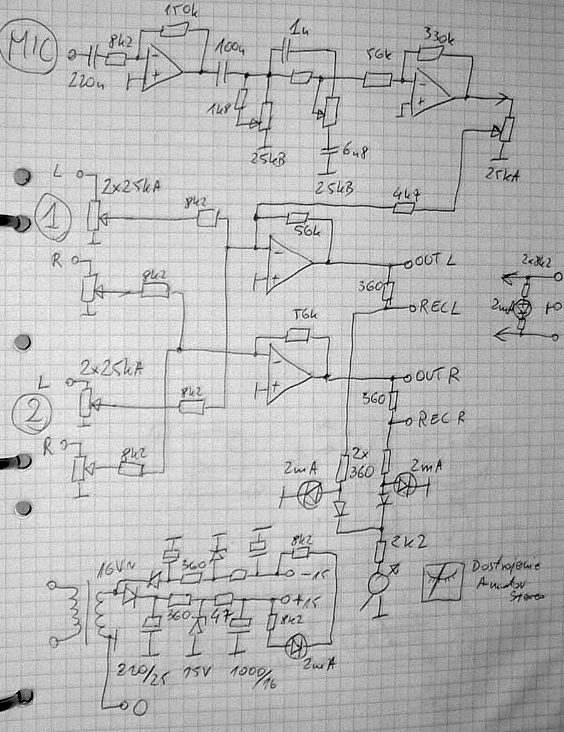 150k
1n
330k
MIC
8k2
100n
56k
220n
1n8
25kB
6n8
25kB
25kA
L
2x25kA
8k2
4k7
1
56k
OUT L
R
8k2
360
2x8k2
REC L
2mA
56k
2x25kA
L
8k2
OUT R
2
360
REC R
R
8k2
2x
360
2mA
2mA
2k2
8k2
16V~
360
-15
+15
360
47
8k2
220/25
15V
1000/16
2mA
0
Stereo